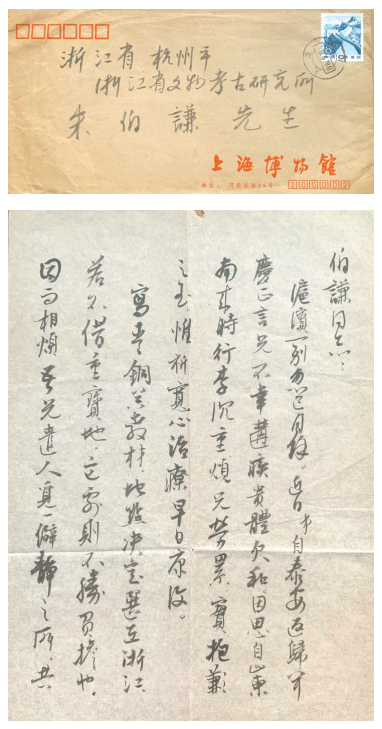 浙江省 杭州市
浙江省文物考古研究所
朱伯謙 先生
上海博物館
地址:河南南路16号 200002
伯謙同志:
滬濱一別忽忽月餘。近日才自泰安返歸
慶正言兄不幸遘疾貴體欠和因思自山東
南來時行李沉重煩兄勞累實抱歉
之至,惟祈寬心治療早日康復。
寫青銅器教材地點決定選在浙江
若不借重寶地,它處則不勝負擔也。
因而相煩吾兄遣人覓一僻靜之所,共